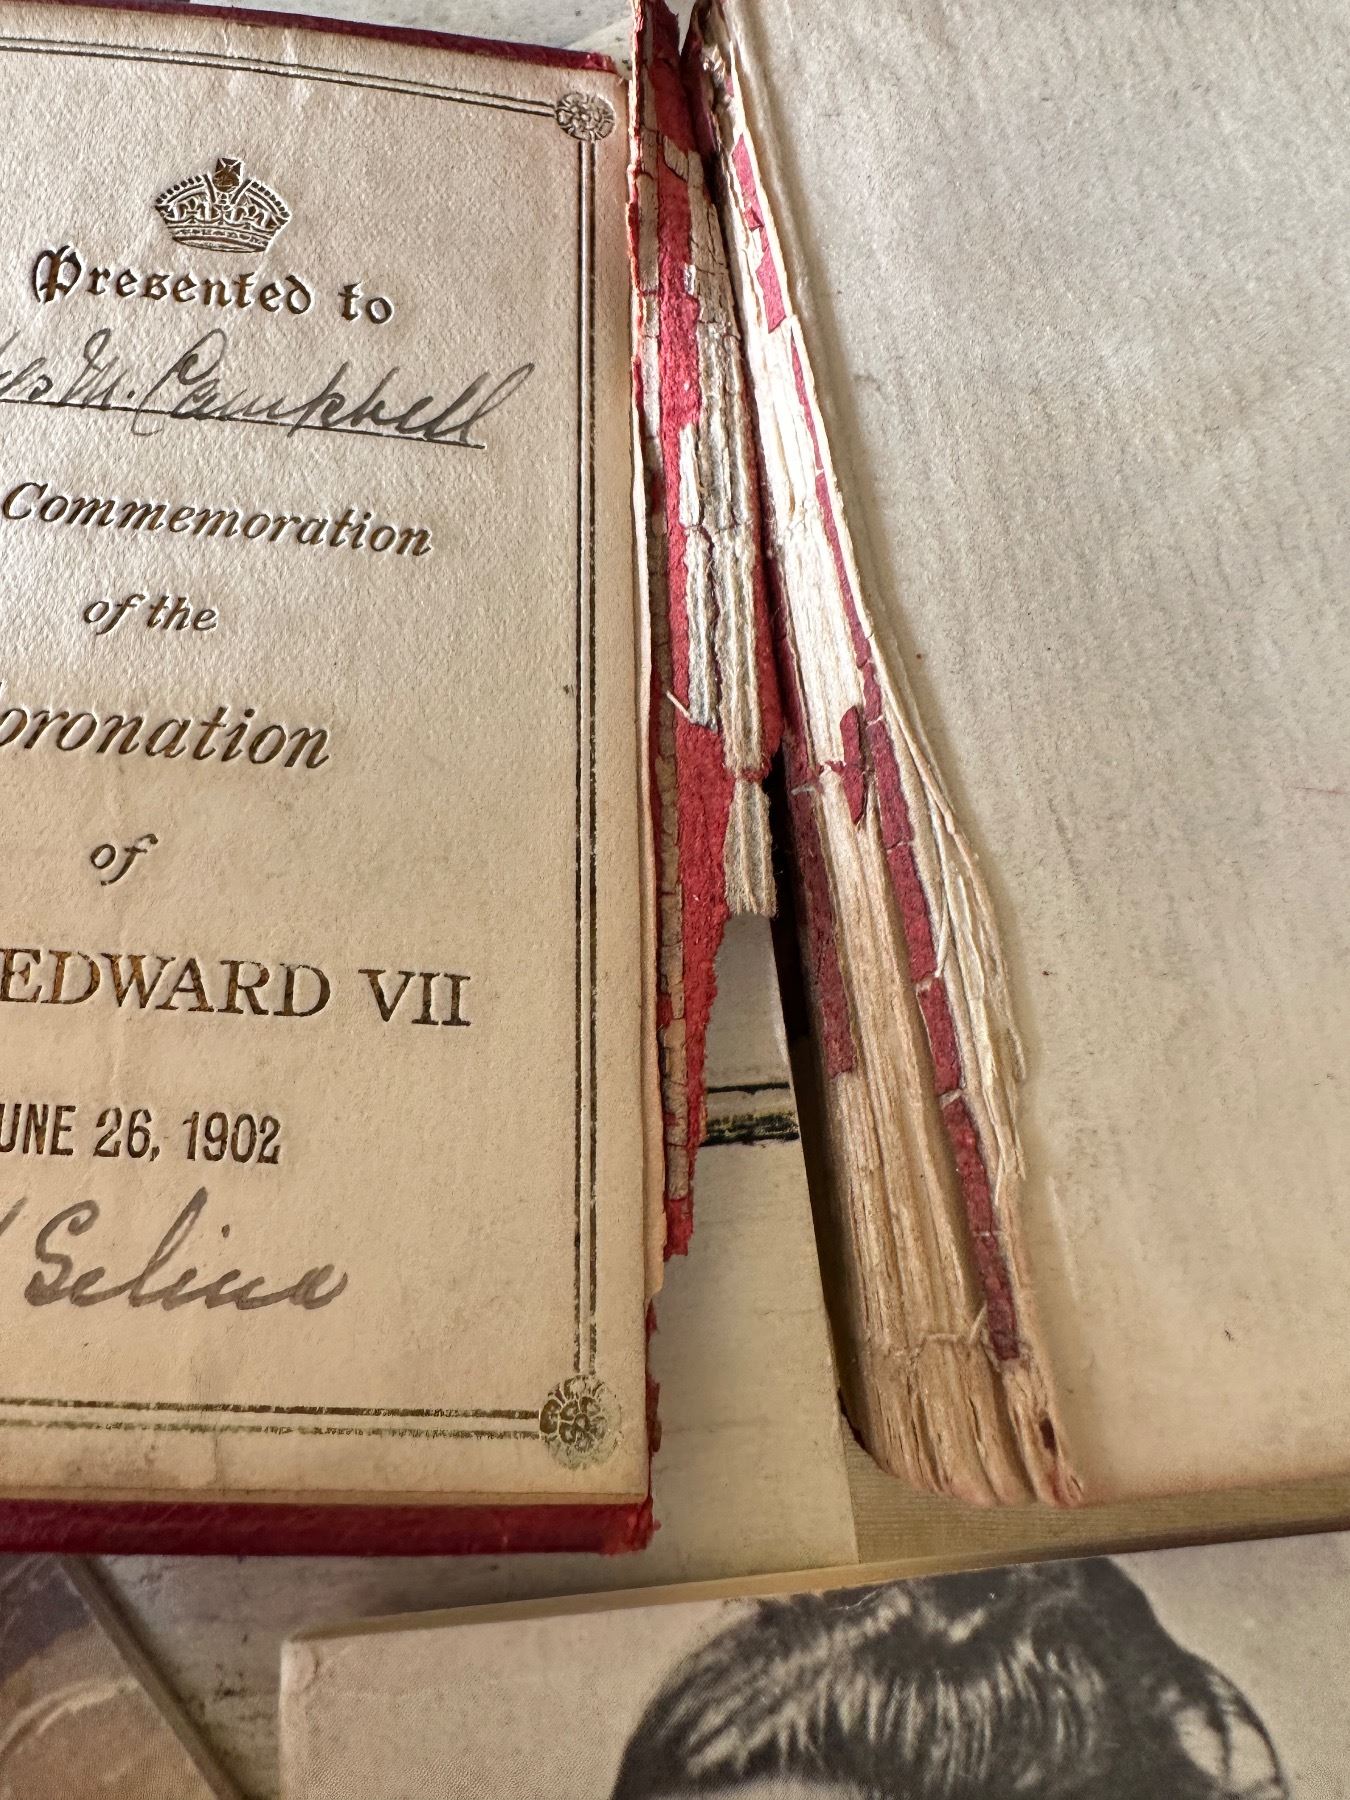 Presented to
M. Campbell
Commemoration
of the
oronation
of
EDWARD VII
UNE 26, 1902
Selina